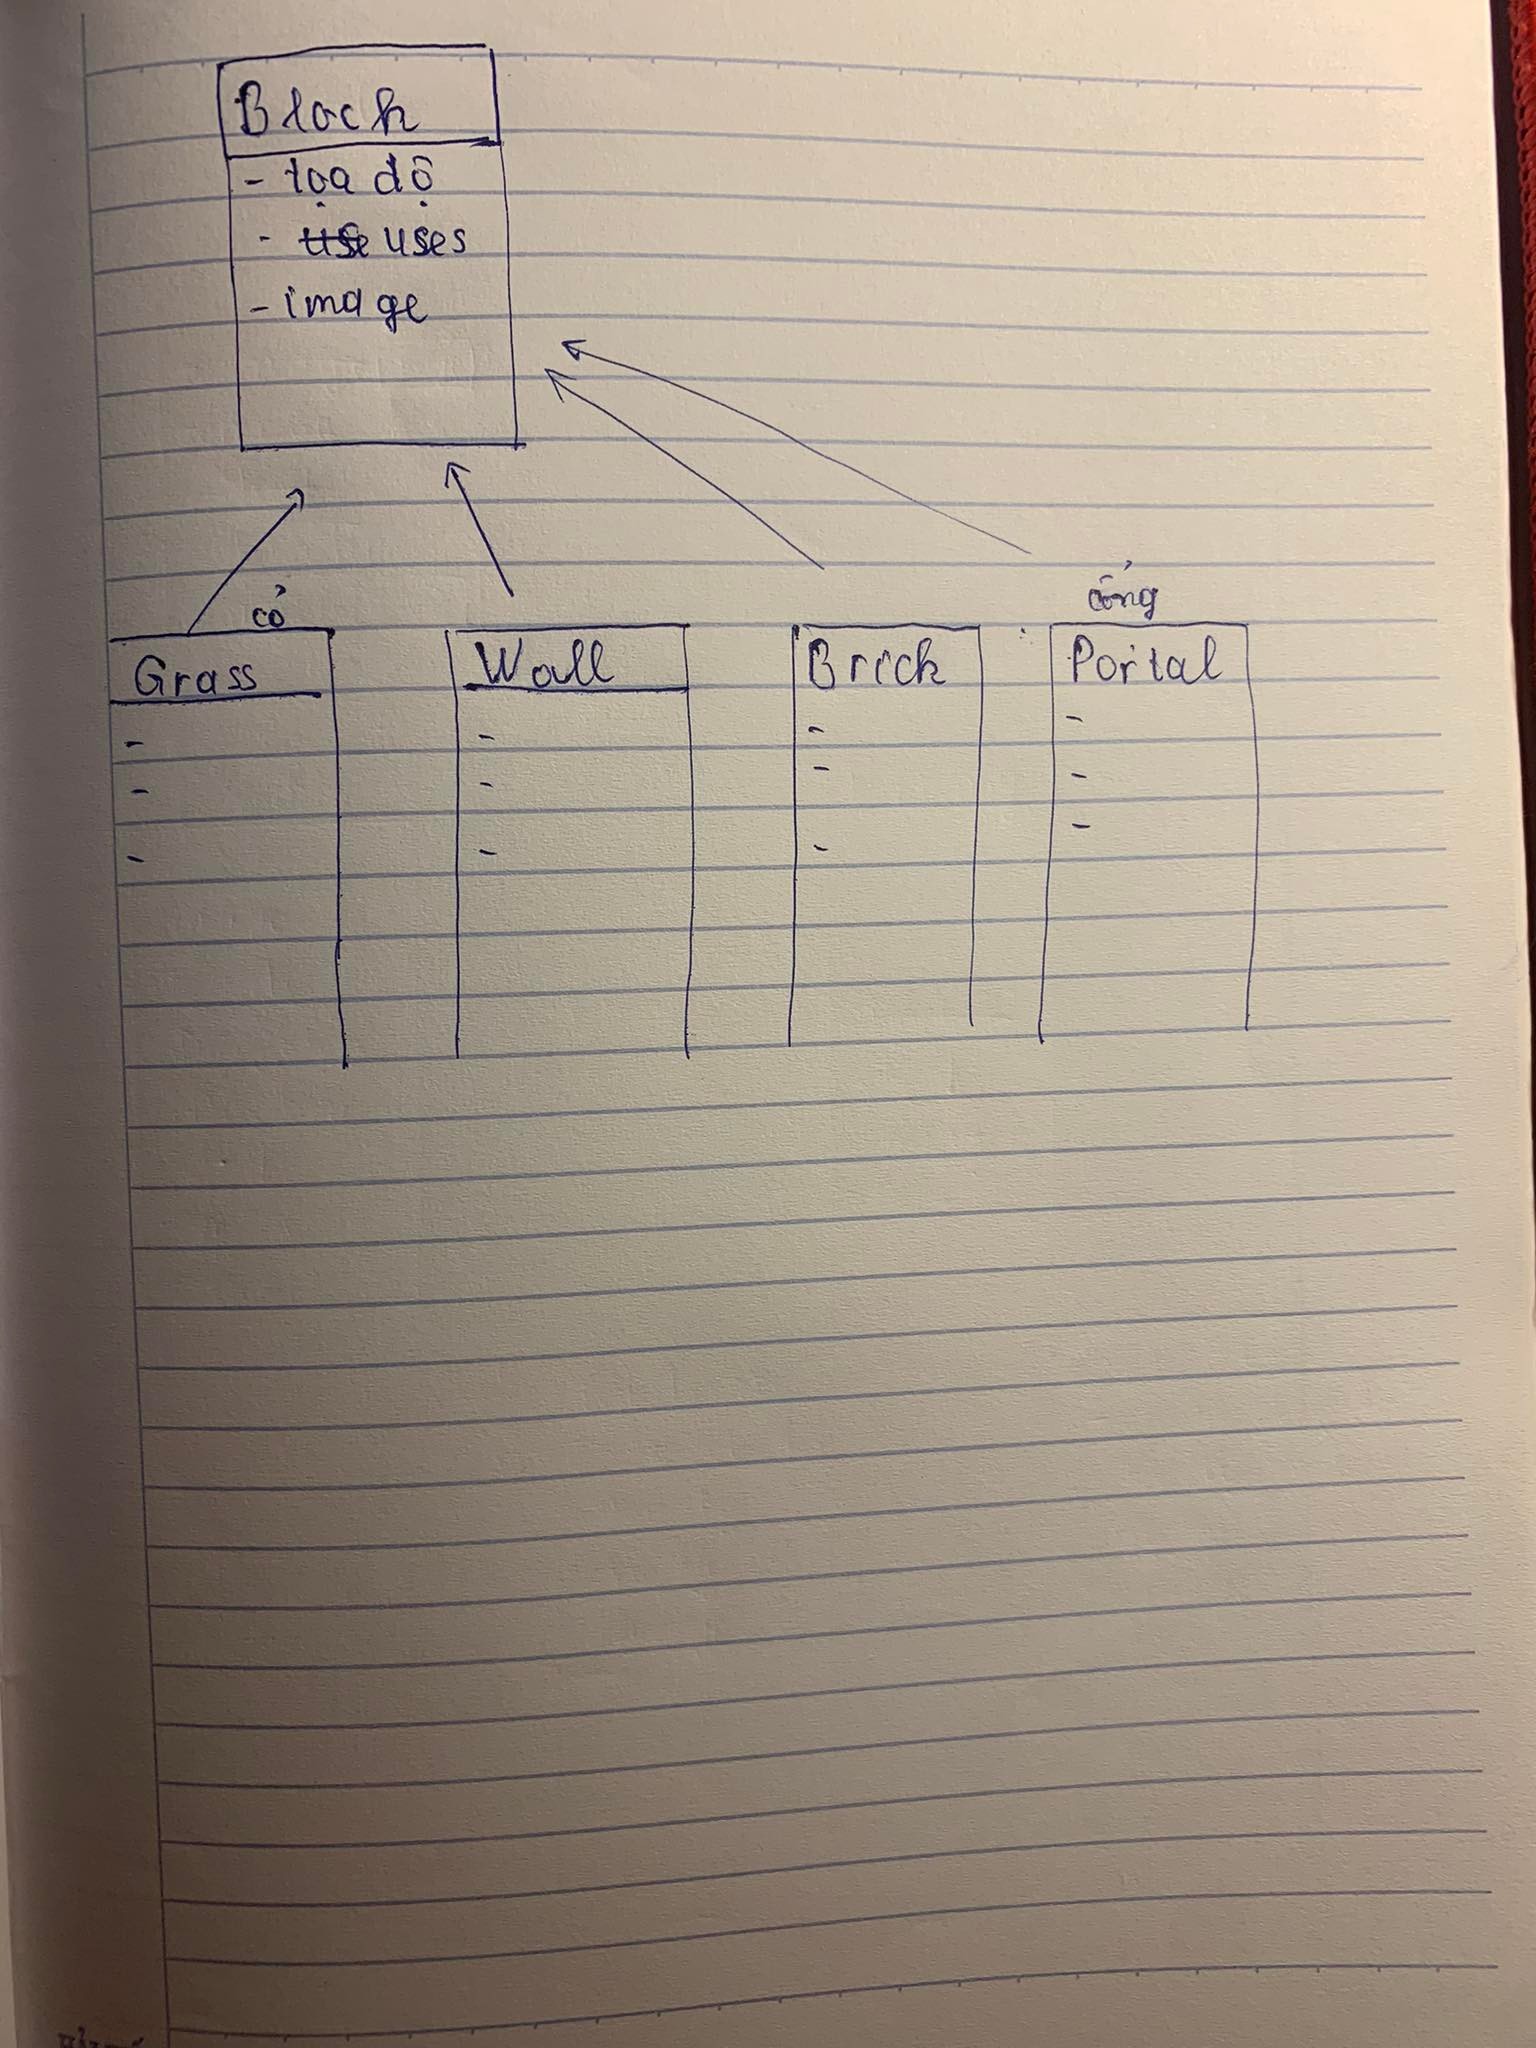 Block
- tọa độ
- use uses
- image
cỏ
cổng
Grass
Wall
Brick
Portal
-
-
-
-
-
-
-
-
-
-
-
-